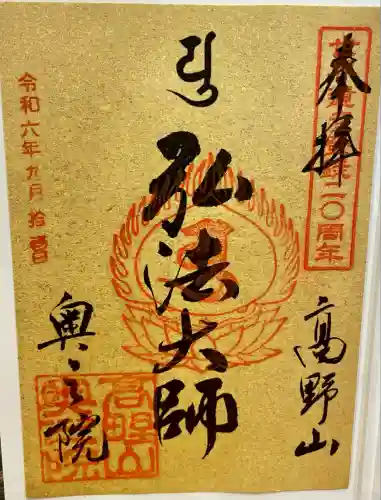 奉拝
高野山
弘法大師
奥之院
令和六年九月拾壹日
高野山
奥之院